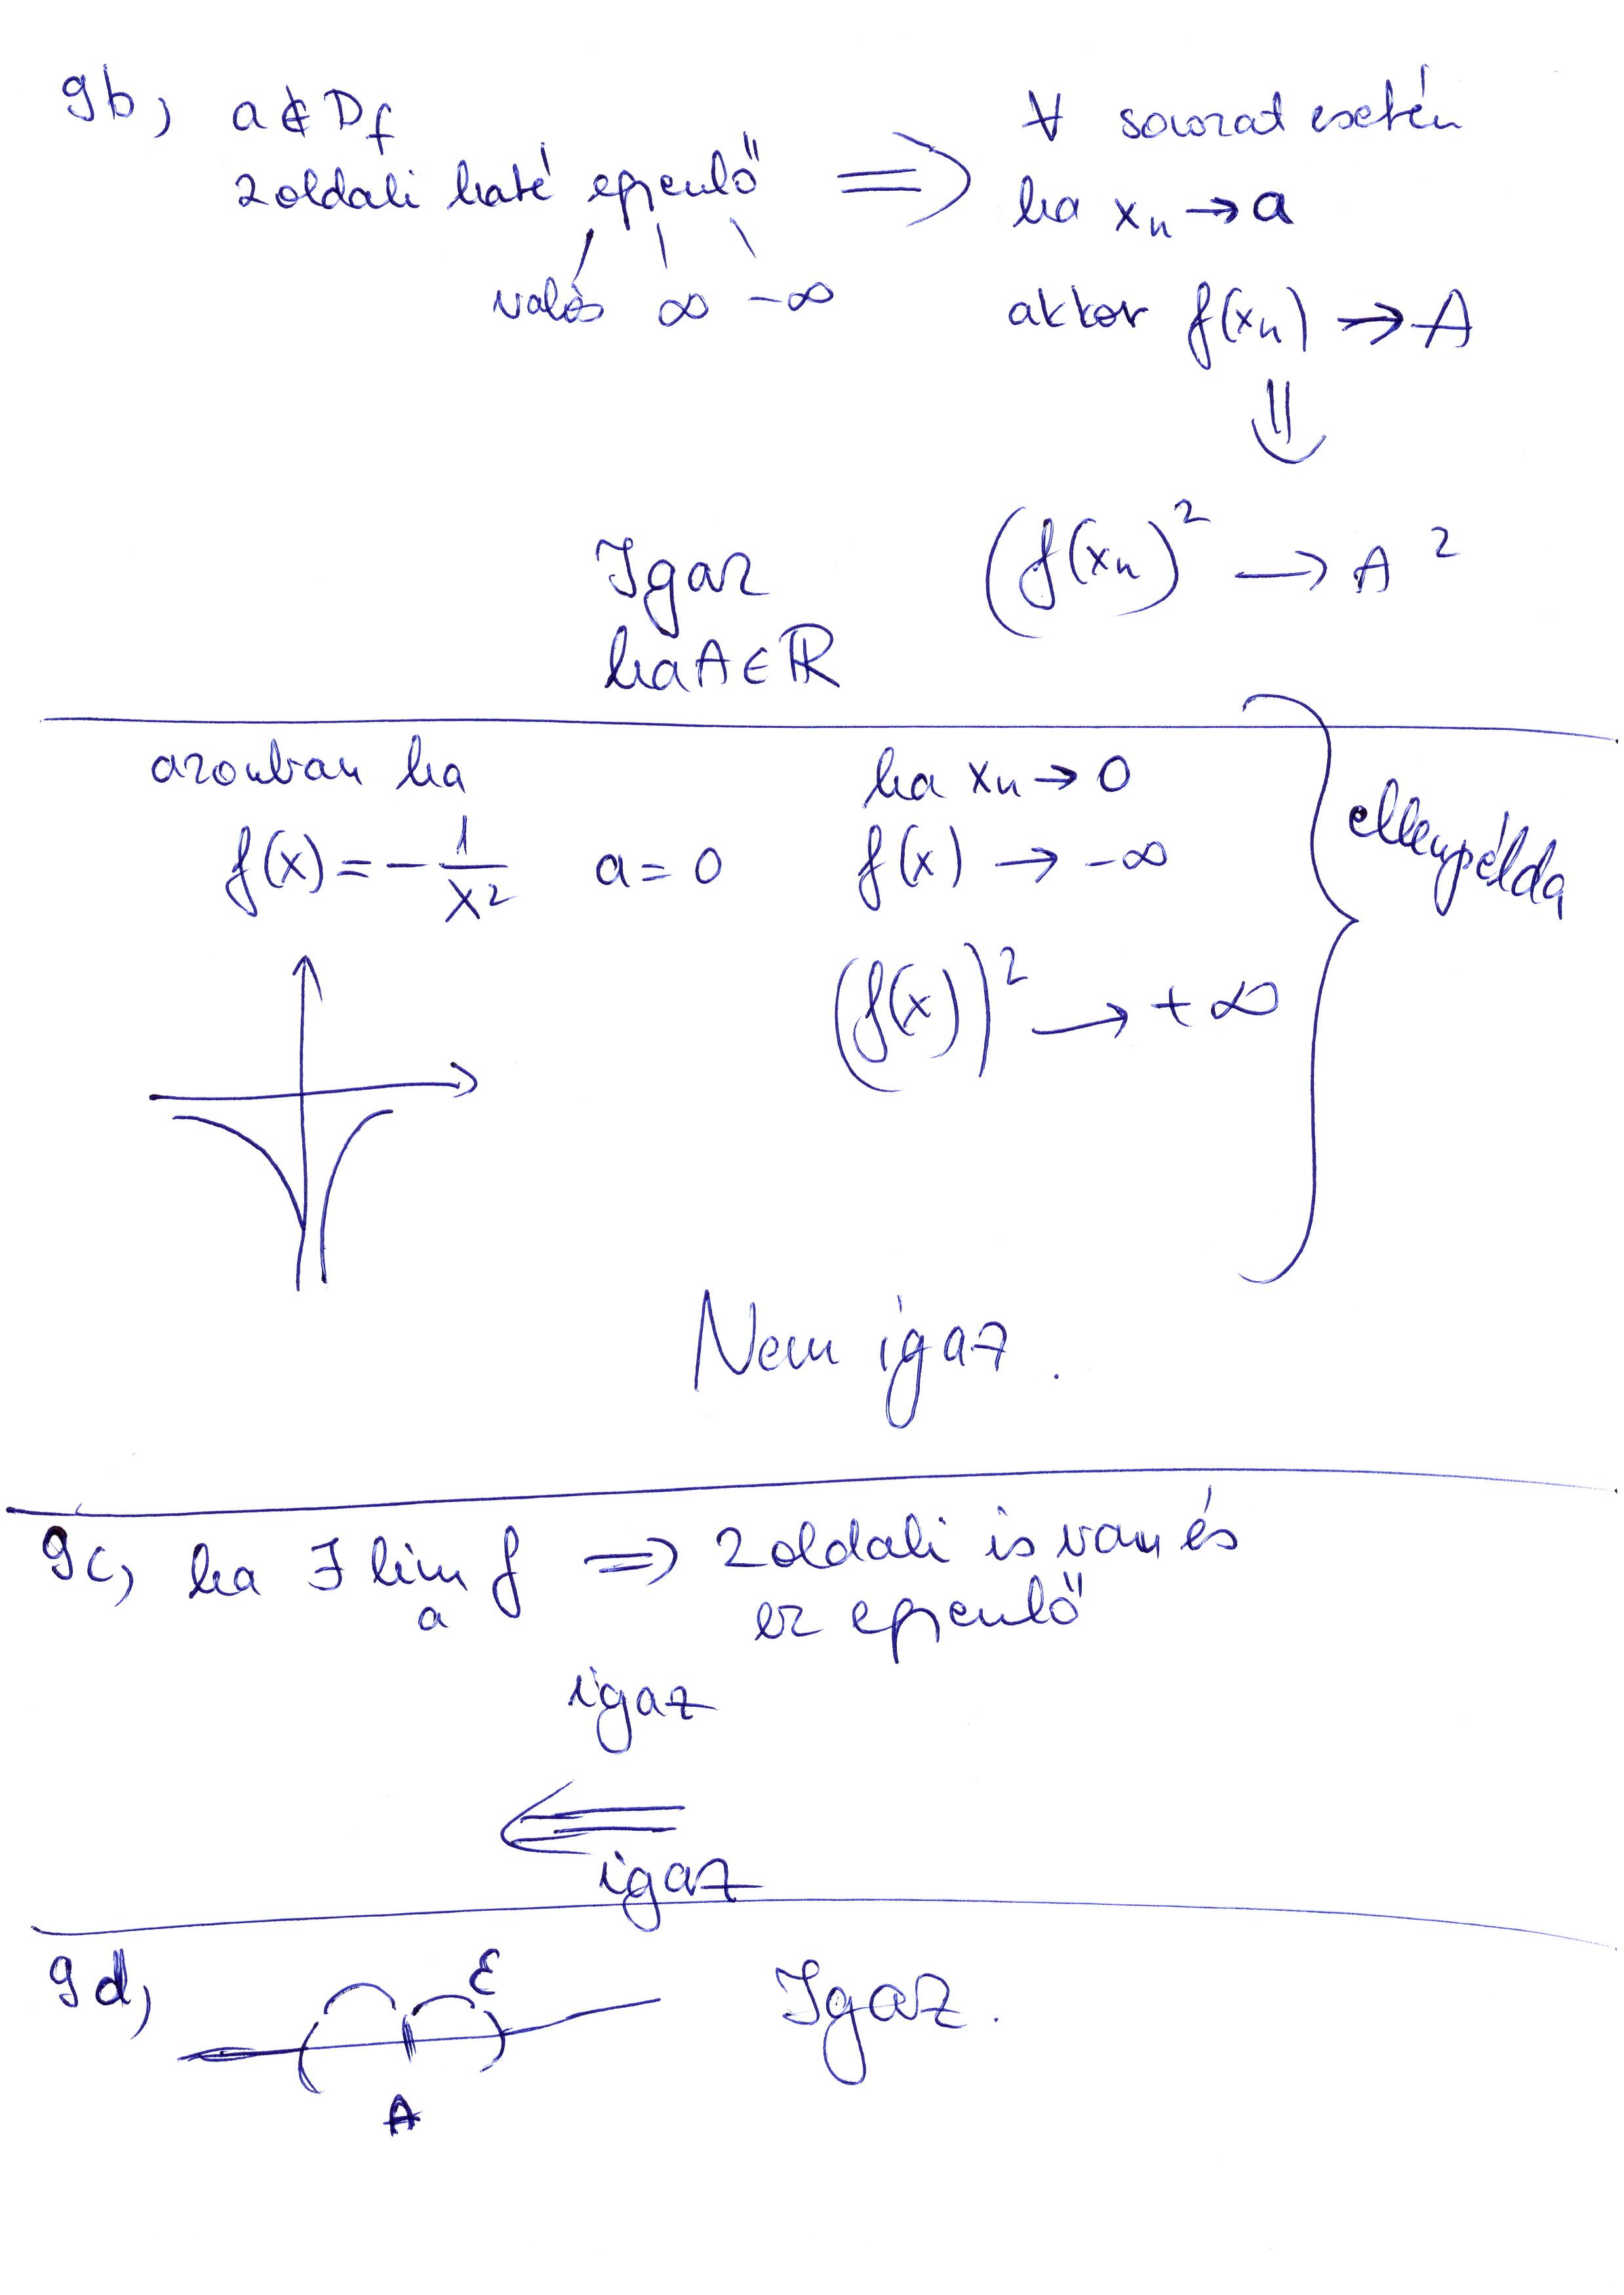 9b, a ∉ Df
2oldali haté egyenlő ⟹
valós ∞ -∞
∀ sorozat esetén
ha xn → a
akkor f(xn) → A
⇓
(f(xn)² → A²
Igaz
ha A ∈ ℝ
azonban ha
f(x) = - 1/x² a = 0
ha xn → 0
f(x) → -∞
(f(x))² → +∞
ellenpélda
Nem igaz.
9c, ha ∃ lim f ⟹ 2oldali is van és
a
ez egyenlő
igaz
⟸
igaz
9d,
ε
A
Igaz.